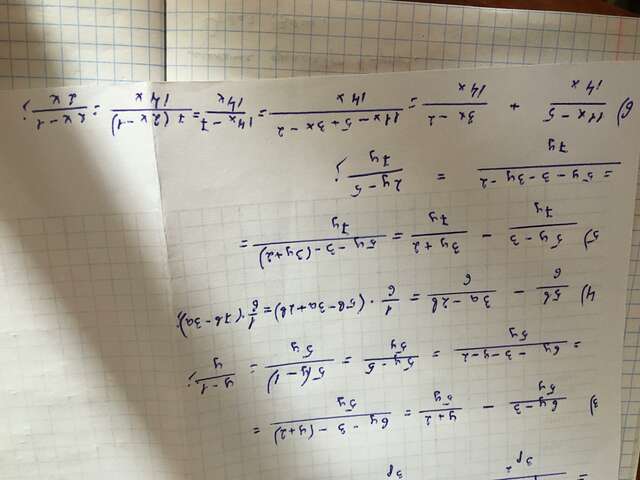 = /3p² /3p
3) (6y-3)/5y - (y+2)/5y = (6y-3-(y+2))/5y =
= (6y-3-y-2)/5y = (5y-5)/5y = 5(y-1)/5y = (y-1)/y ;
4) 5b/6 - (3a-2b)/6 = 1/6 · (5b-3a+2b) = 1/6 · (7b-3a);
5) (5y-3)/7y - (3y+2)/7y = (5y-3-(3y+2))/7y =
= (5y-3-3y-2)/7y = (2y-5)/7y ;
6) (11x-5)/14x + (3x-2)/14x = (11x-5+3x-2)/14x = (14x-7)/14x = 7(2x-1)/14x = (2x-1)/2x ;